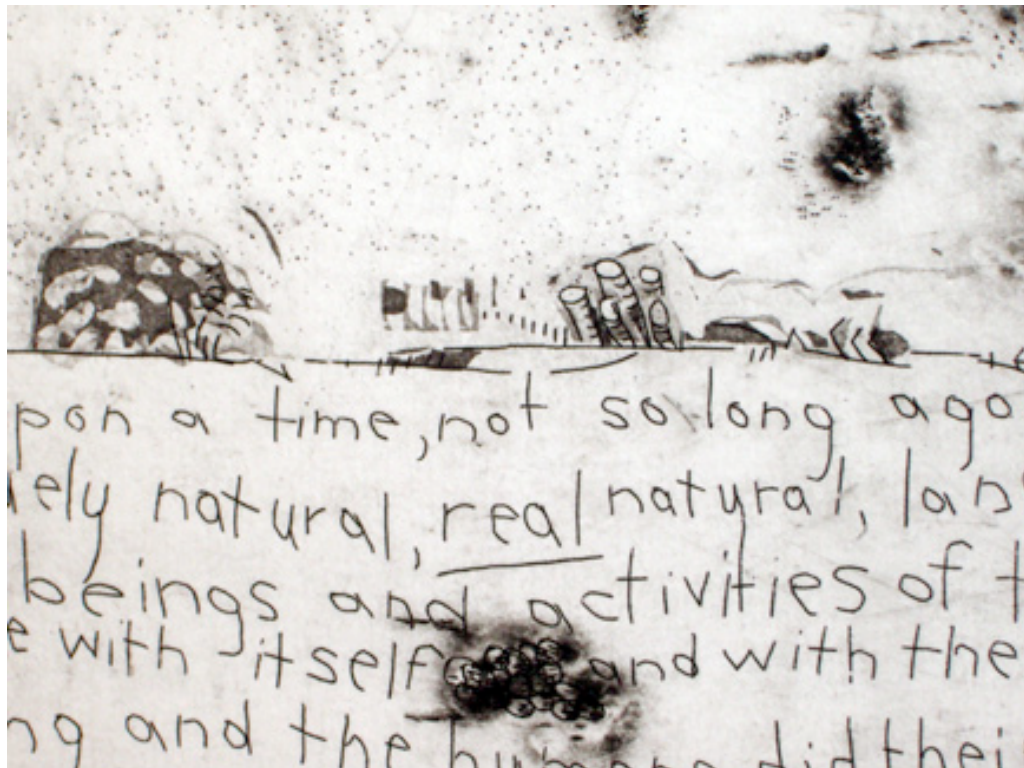 pon a time, not so long ago
ely natural, real natural, lan
beings and activities of t
e with itself and with the
ng and the humans did thei